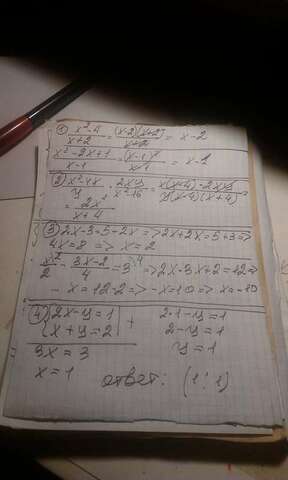 1) (x²-4)/(x+2) = ((x-2)(x+2))/(x+2) = x-2
(x²-2x+1)/(x-1) = (x-1)²/(x-1) = x-1
2) (x²-4x)/y · 2xy/(x²-16) = (x(x-4)·2xy)/(y(x-4)(x+4)) =
= 2x²/(x+4)
3) 2x-3=5-2x => 2x+2x=5+3 =>
4x=8 => x=2
x/2 - (3x-2)/4 = 3 |·4 => 2x-3x+2=12 =>
-x=12-2 => -x=10 => x=-10
4) {2x-y=1
{x+y=2 +
3x=3
x=1
2·1-y=1
2-y=1
y=1
ответ: (1;1)